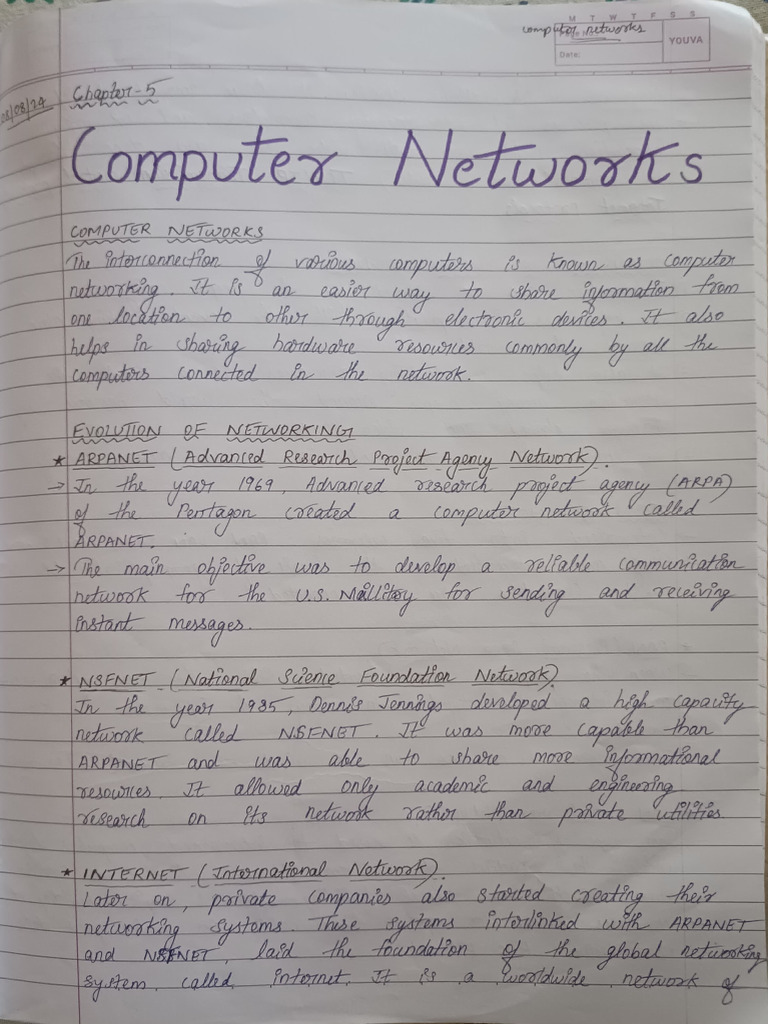 M T W T F S S
computer networks
Page No.:
YOUVA
Date:
08/08/24
Chapter-5
Computer Networks
COMPUTER NETWORKS
The interconnection of various computers is known as computer
networking. It is an easier way to share information from
one location to other through electronic devices. It also
helps in sharing hardware resources commonly by all the
computers connected in the network.
EVOLUTION OF NETWORKING
* ARPANET (Advanced Research Project Agency Network).
→ In the year 1969, Advanced research project agency (ARPA)
of the Pentagon created a computer network called
ARPANET.
→ The main objective was to develop a reliable communication
network for the U.S. Millitary for sending and receiving
instant messages.
* NSFNET (National Science Foundation Network)
In the year 1985, Dennis Jennings developed a high capacity
network called NSFNET. It was more capable than
ARPANET and was able to share more informational
resources. It allowed only academic and engineering
research on its network rather than private utilities
* INTERNET (International Network).
Later on, private companies also started creating their
networking systems. These systems interlinked with ARPANET
and NSFNET, laid the foundation of the global networking
system called internet. It is a worldwide network of